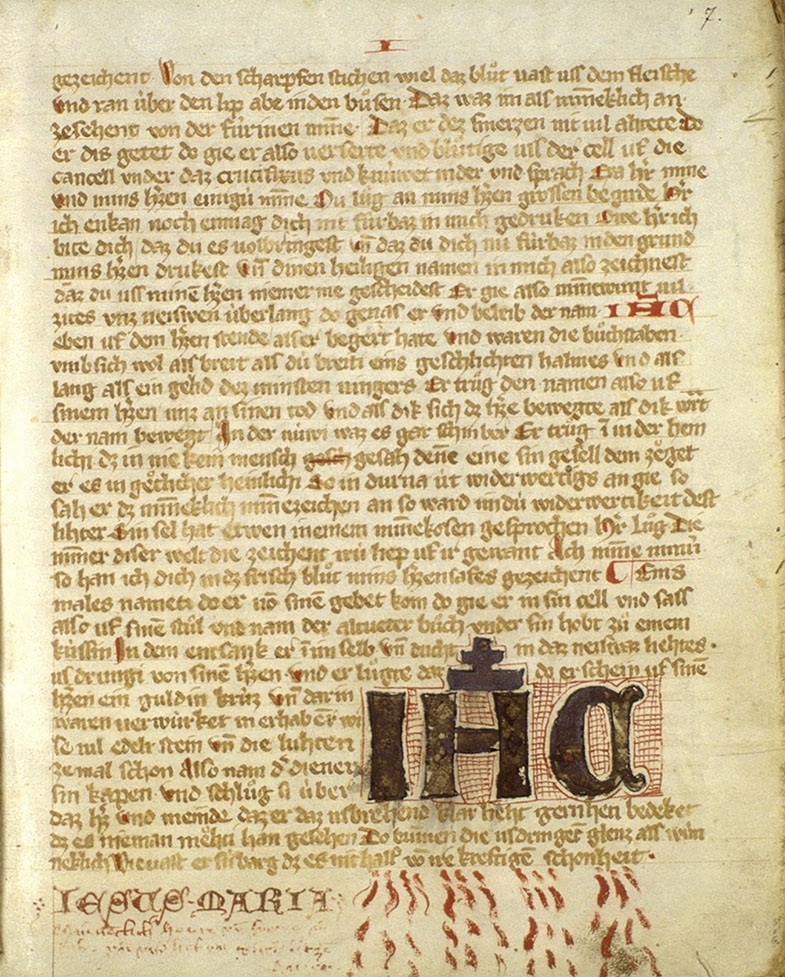 7.
I
gezeichent Von den scharpfen stichen wiel daz blůt vast uss dem fleische
vnd ran über den lip abe in den bůsen Daz waz im als minneklich an
zesehent von der fúrinen minne Daz er dez smerzen nit vil ahtete Do
er dis getet do gie er also verserte vnd blůtige uss der cell uf die
cancell vnder daz crucifixus vnd knúwet nider vnd sprach Eya hr̄ mine
vnd mins hˀzen einigú mīne Nu lůg an mins hˀzen grossen begirde hˀr
ich enkan noch enmag dich nit fúrbaz in mich gedruken Owe hˀr ich
bite dich daz du es volbringest vn̄ daz du dich nu fúrbaz in den grund
mins hˀzen drukest vn̄ dinen heiligen namen in mich also zeichnest
daz du uss minē hˀzen niemer me gescheidest Er gie also minnwunt vil
zites vnz neiswen úberlang do genas er vnd beleib der nam IHC
eben uf dem hˀzen stende als er begert hate vnd waren die bůchstaben
vmb sich wol als breit als dú breiti eins geschlichten halmes vnd als
lang als ein gelid dez minsten vingers Er trůg den namen also uf
sinem hˀzen unz an sinen tod vnd als dik sich dz hˀze bewegte als dik wˀt
der nam bewegt In der núwi waz es gar schinber Er trůg ī in der hein
lichi dz in nie kein mensch gesah denne eine sin gesell dem zoͤget
er es in goͤtlicher heinlichi So in dur na út widerwertiges an gie so
sah er dz minneklich minnezeichen an so ward im dú widerwertikeit dest
lihter Sin sel hat etwen in einem minnekosen gesprochen hˀr lůg Die
minner diser welt die zeichent irú liep uf ir gewant Ach minne minú
so han ich dich in dz frisch blůt mins hˀzensafes gezeichent Eins
males nach meti do er vō sinē gebet kom do gie er in sin cell vnd sass
also uf sinē stůl vnd nam der altveter bůch vnder sin hobt zů einem
kússin In dem entsank er im selb vn̄ ducht in daz neiswaz liehtes
us drungi von sinē hˀzen vnd er lůgte dar do erschein uf sinē
hˀzen ein guldin krúz vn̄ dar in
waren verwúrket in erhabēr wi
se vil edelr stein vn̄ die luhten
ze mal schon Also nam dˀ diener
sin kappen vnd schlůg si úber
IHC
daz hˀz vnd meinde daz er daz usbrehend klar lieht gern heti bedeket
dz es nieman moͤhti han gesehen Do brunnen die usdringēt glenz als wun
neklich Wie vast er si barg dz es nit half vō ire kreftigē schonheit
IESUS · MARIA